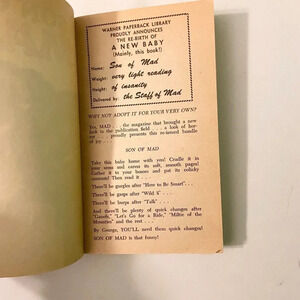 WARNER PAPERBACK LIBRARY
PROUDLY ANNOUNCES
THE RE-BIRTH OF
A NEW BABY
(Mainly, this book!)
Name: Son of Mad
Weight: very light reading
Height: of insanity
Delivered by: the Staff of Mad
WHY NOT ADOPT IT FOR YOUR VERY OWN?
Yes, MAD . . . the magazine that brought a new
look to the publication field . . . a look of hor-
ror . . . proudly presents this re-issued bundle
of joy . . .
SON OF MAD
Take this baby home with you! Cradle it in
your arms and caress its soft, smooth pages!
Gather it to your bosom and put its colicky
Then read it . . .
There'll be gurgles after "How to Be Smart" . . .
There'll be gasps after "Wild ½" . . .
There'll be burps after "Talk" . . .
And there'll be plenty of quick changes after
"Gasoils," "Let's Go for a Ride," "Miltie of the
Mounties" and the rest . . .
By George, YOU'LL need them quick changes!
SON OF MAD is that funny!